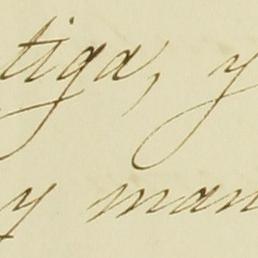 tiga, y
y man